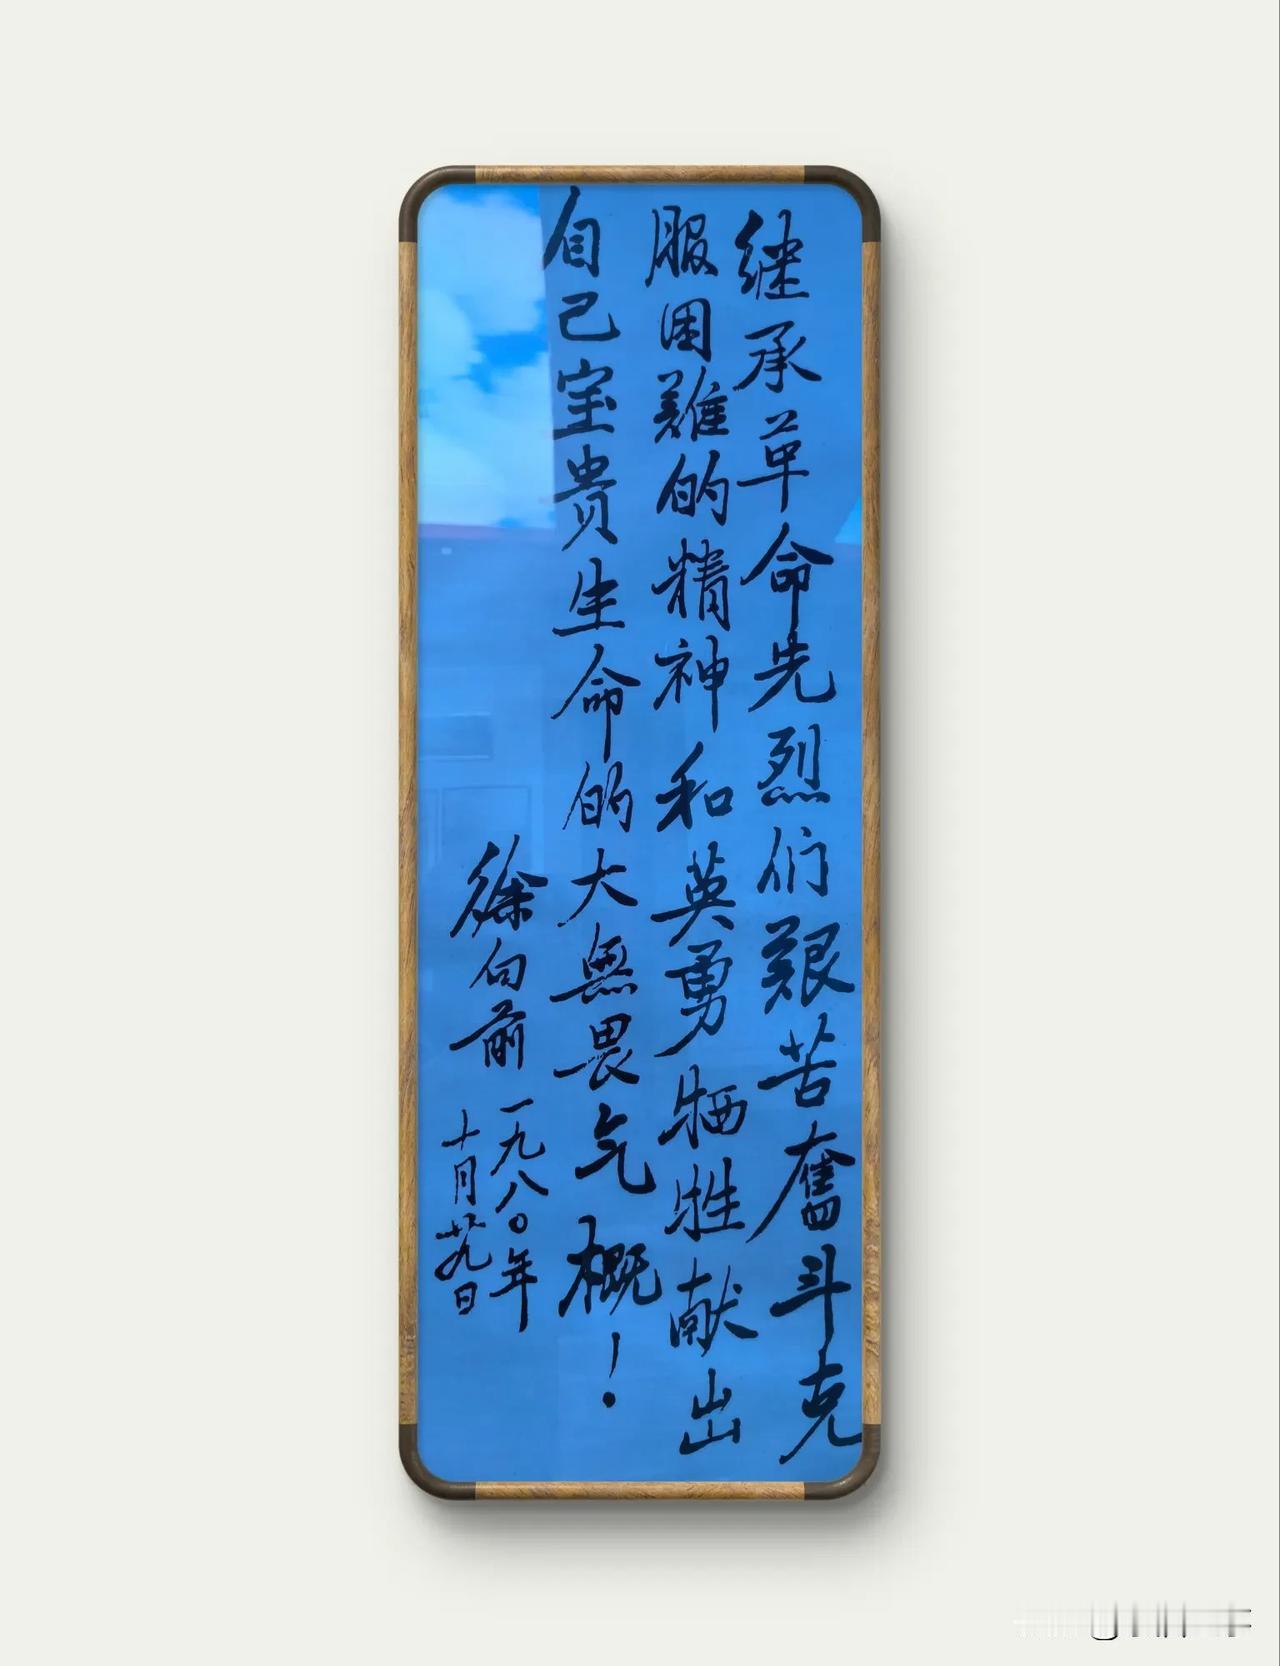 继承革命先烈们艰苦奮斗克
服困難的精神和英勇牺牲献出
自己宝贵生命的大無畏气概！
徐向前
一九八〇年
十月廿九日